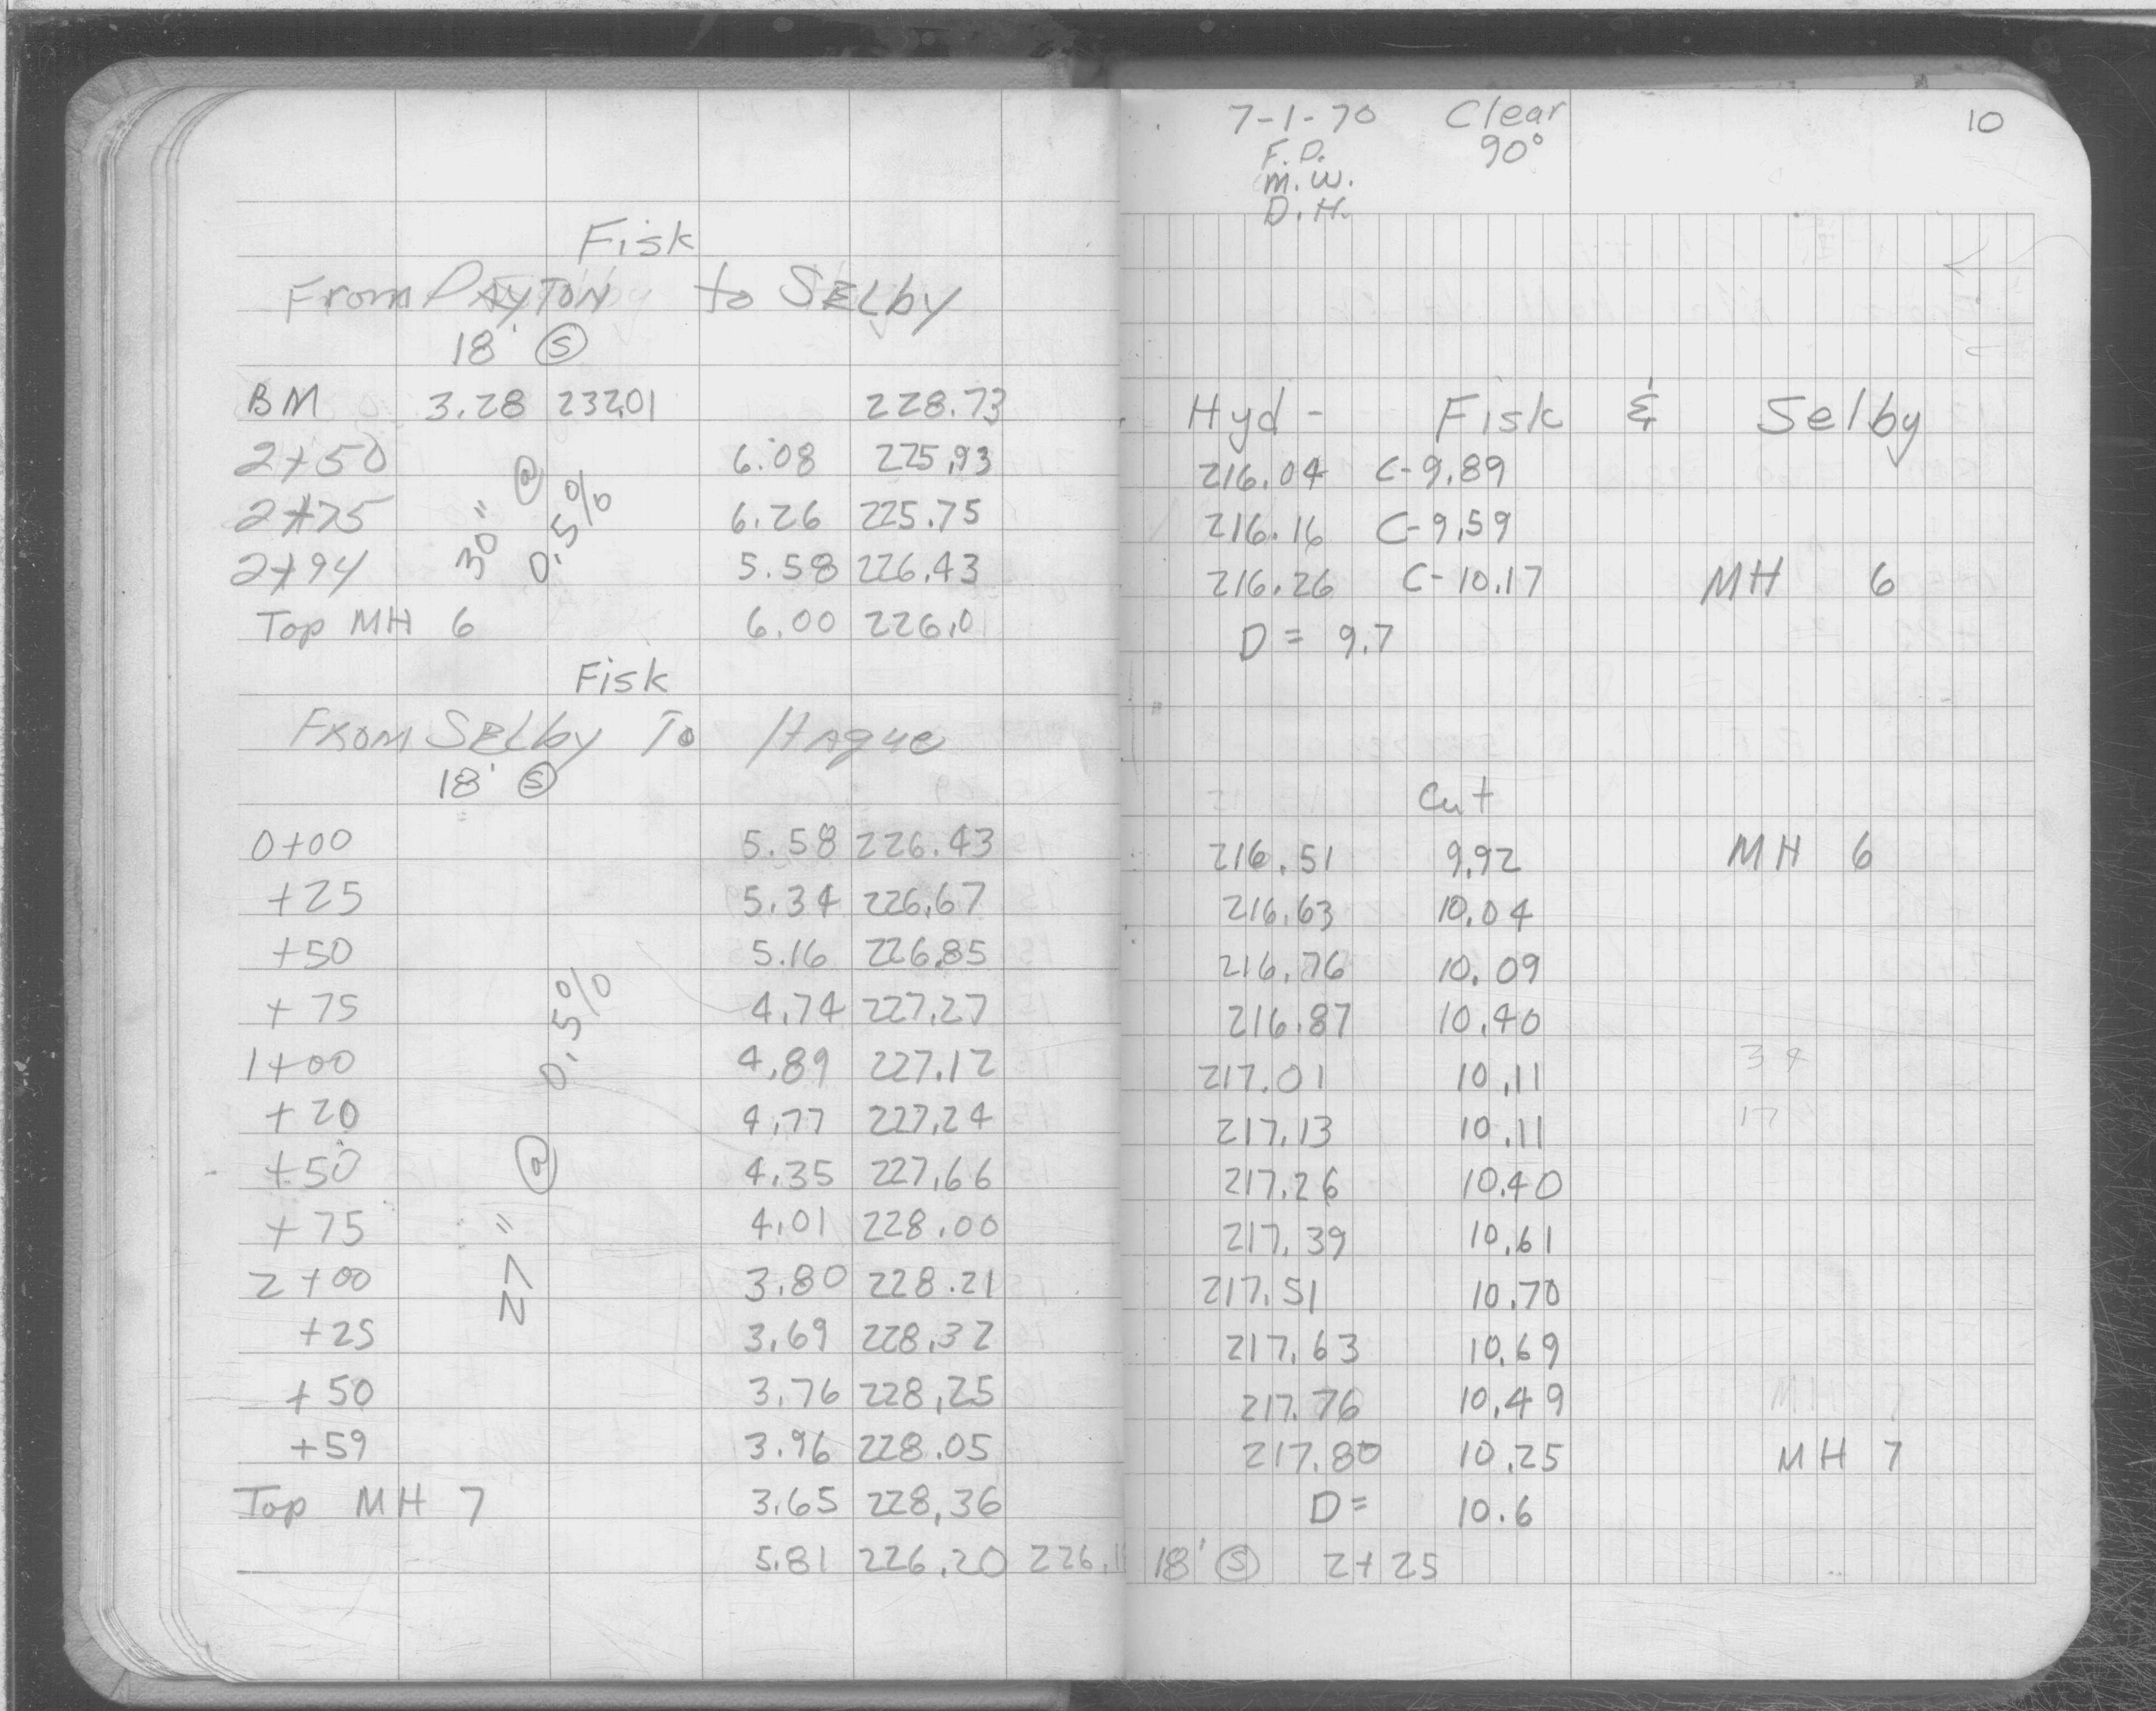 Fisk
From DAYTON to SELby
18' Ⓢ
BM 3.28 232.01 228.73
2+50 6.08 225.93
2+75 6.26 225.75
2+94 5.58 226.43
30" @ 0.5%
Top MH 6 6.00 226.0
Fisk
FROM SELby To HAgue
18' Ⓢ
0+00 5.58 226.43
+25 5.34 226.67
+50 5.16 226.85
+75 4.74 227.27
1+00 4.89 227.12
+20 4.77 227.24
+50 4.35 227.66
+75 4.01 228.00
2+00 3.80 228.21
+25 3.69 228.32
+50 3.76 228.25
+59 3.96 228.05
27" @ 0.5%
Top MH 7 3.65 228.36
5.81 226.20
7-1-70 Clear 10
F.D. 90°
M.W.
D.H.
Hyd - Fisk & Selby
216.04 C-9.89
216.16 C-9.59
216.26 C-10.17 MH 6
D = 9.7
Cut
216.51 9.92 MH 6
216.63 10.04
216.76 10.09
216.87 10.40
217.01 10.11 34
217.13 10.11 17
217.26 10.40
217.39 10.61
217.51 10.70
217.63 10.69
217.76 10.49
217.80 10.25 MH 7
D = 10.6
18' Ⓢ 2+25